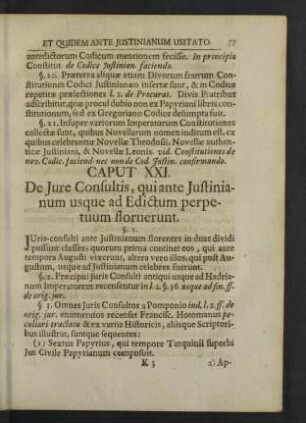 ET QUIDEM ANTE JUSTINIANUM USITATO. 77
antedictorum Codicum mentionem fecisse. In principio
Constitut. de Codice Justinian. faciendo.
§. 20. Præterea aliquæ etiam Divorum fratrum Con-
stitutiones Codici Justinianæo insertæ sunt, & in Codice
repetitæ prælectionis l. 2. de Procurat. Divis Fratribus
adscribitur, quæ procul dubio non ex Papyriani libris con-
stitutionum, sed ex Gregoriano Codice desumpta fuit.
§. 21. Insuper variorum Imperatorum Constitutiones
collectæ sunt, quibus Novellarum nomen inditum est, ex
quibus celebrantur Novellæ Theodosii. Novellæ authen-
ticæ Justiniani, & Novellæ Leonis. vid. Constitutiones de
nov. Codic. faciend. nec non de Cod. Justin. confirmando.
CAPUT XXI.
De Jure Consultis, qui ante Justinia-
num usque ad Edictum perpe-
tuum floruerunt.
§. 1.
JUris-consulti ante Justinianum florentes in duas dividi
possunt classes, quorum prima continet eos, qui ante
tempora Augusti vixerunt, altera vero illos, qui post Au-
gustum, usque ad Justinianum celebres fuerunt.
§. 2. Præcipui Juris Consulti antiqui usque ad Hadria-
num Imperatorem recensentur in l. 2. §. 36. usque ad fin. ff.
de orig. jur.
§ 3. Omnes Juris Consultos a Pomponio in d. l. 2. ff. de
orig. jur. enumeratos recenset Francisc. Hotomanus pe-
culiari tractatu & ex variis Historicis, aliisque Scriptori-
bus illustrat, suntque sequentes:
(1) Sextus Papyrius, qui tempore Tarquinii superbi
Jus Civile Papyrianum composuit.
K 3 2) Ap-